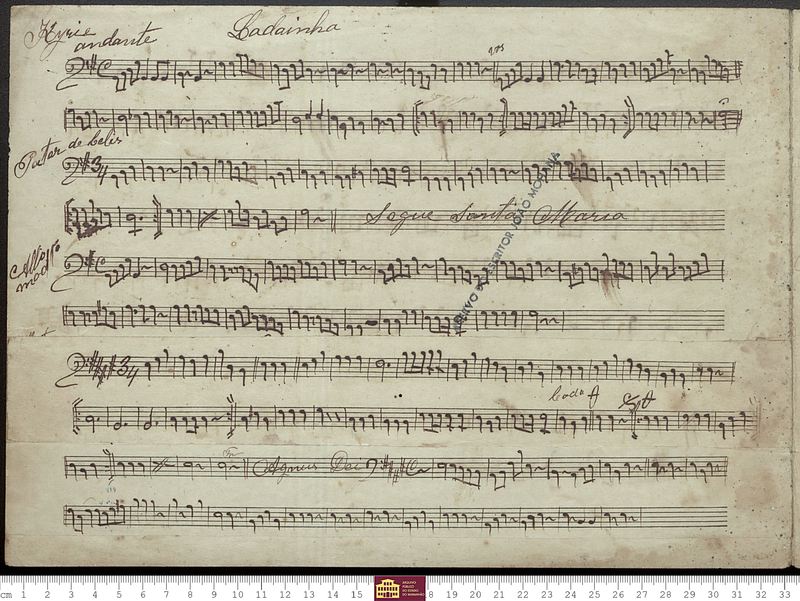 Kyrie
andante
Ladainha
Pater de Celis
3/4
Segue Santa Maria
Allº
modtº
3/4
Coda
Agnus Dei
ARQUIVO DO ESCRITOR JOÃO MOHANA
cm 1 2 3 4 5 6 7 8 9 10 11 12 13 14 15 18 19 20 21 22 23 24 25 26 27 28 29 30 31 32 33
ARQUIVO
PÚBLICO
DO ESTADO
DO MARANHÃO